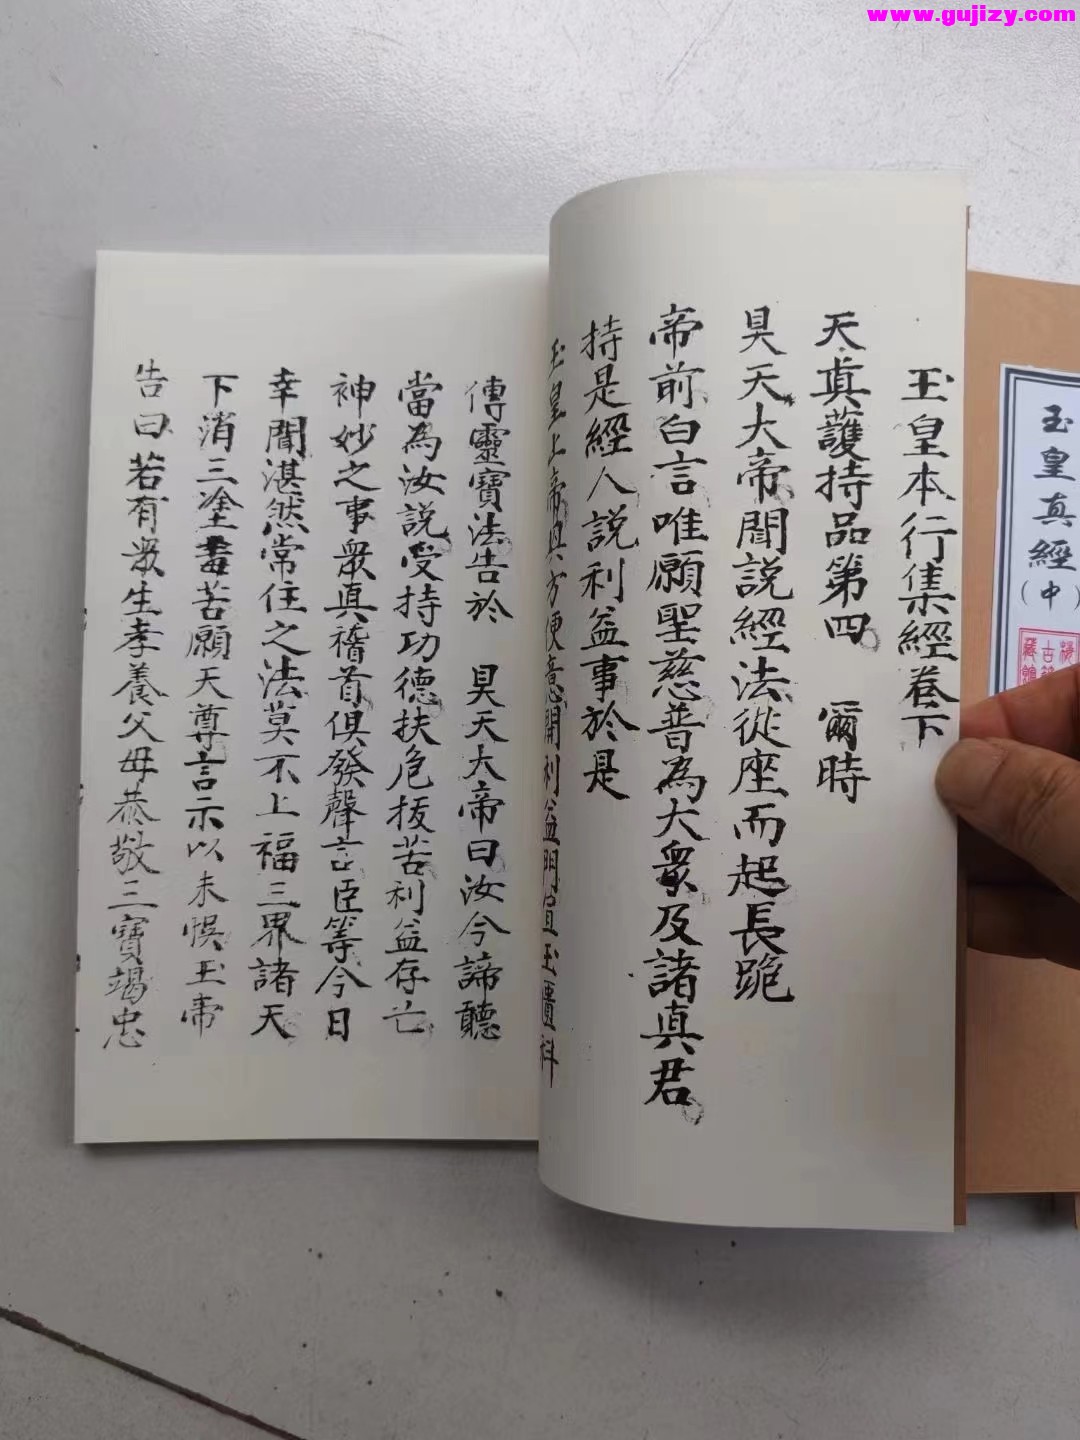 www.gujizy.com
玉皇本行集經卷下
天真護持品第四　爾時
昊天大帝聞說經法從座而起長跪
帝前白言唯願聖慈普為大眾及諸真君
持是經人説利益事於是
玉皇上帝與方便意開利益門宣玉匱科
傳靈寶法告於　昊天大帝曰汝今諦聽
當為汝説受持功德扶危拔苦利益存亡
神妙之事眾真稽首俱發聲言臣等今日
幸聞湛然常住之法莫不上福三界諸天
下消三塗毒苦願天尊言示以未悮玉帝
告曰若有眾生孝養父母恭敬三寶竭忠
玉皇真經(中)